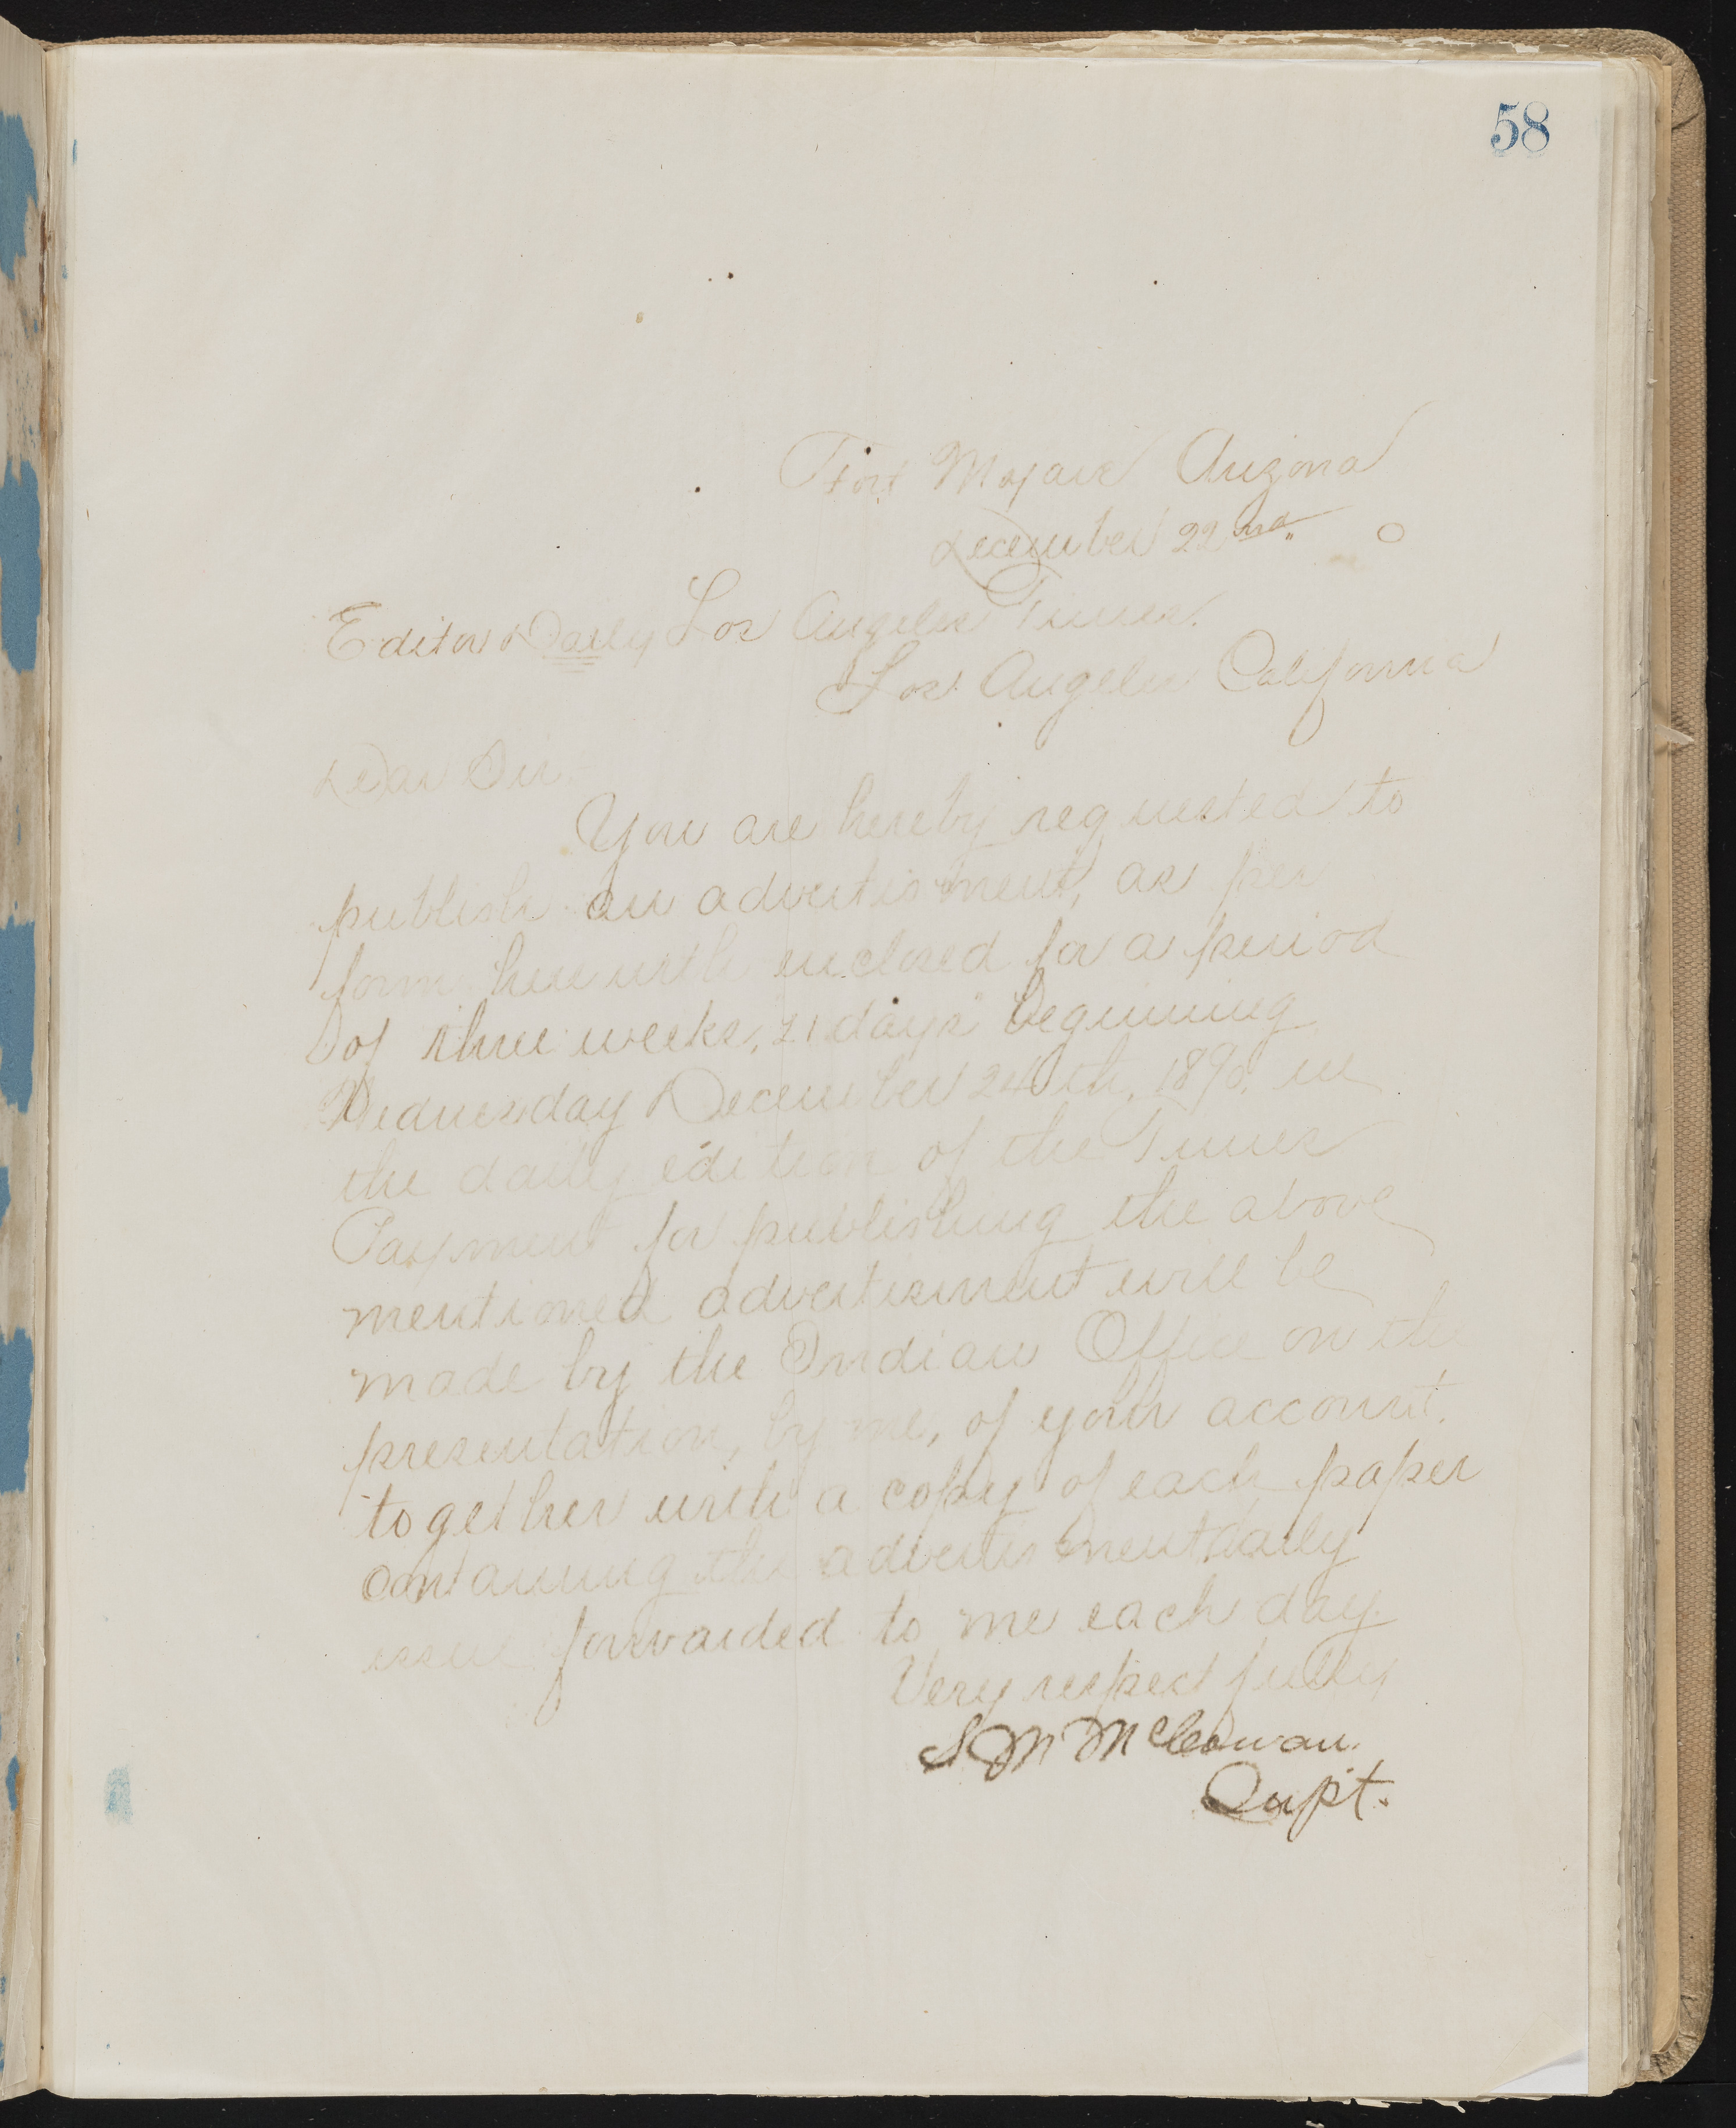 58
Fort Mojave Arizona
December 22nd. 0
Editor Daily Los Angeles Times.
Los Angeles California
Dear Sir
You are hereby requested to
publish an advertisment, as per
form herewith enclosed for a period
of three weeks, "21 days" beginning
Wednesday December 24th, 1890, in
the daily edition of the Times
Payment for publishing the above
mentioned advertisment will be
made by the Indian Office on the
presentation, by me, of your account.
together with a copy of each paper
containing the advertisment daily
issue forwarded to me each day.
Very respectfully
S M McCowan.
Supt.